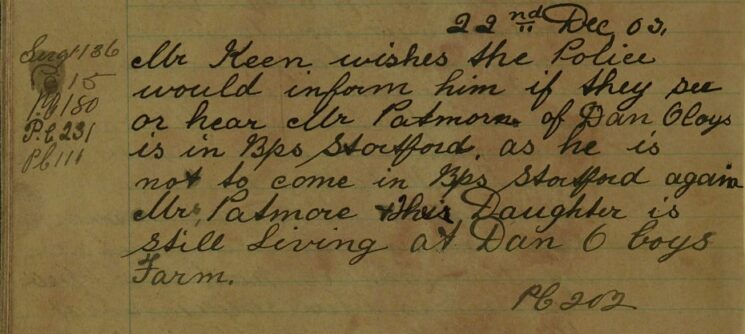 22nd Dec 03.
Sergt 136
15
Pc 180
P.c 231
Pc 111
Mr Keen wishes the Police
would inform him if they see
or hear Mr Patmore of Dan O boys
is in Bps Stortford, as he is
not to come in Bps Stortford again
Mr Patmore & his Daughter is
still living at Dan O boys
Farm.
Pc 202